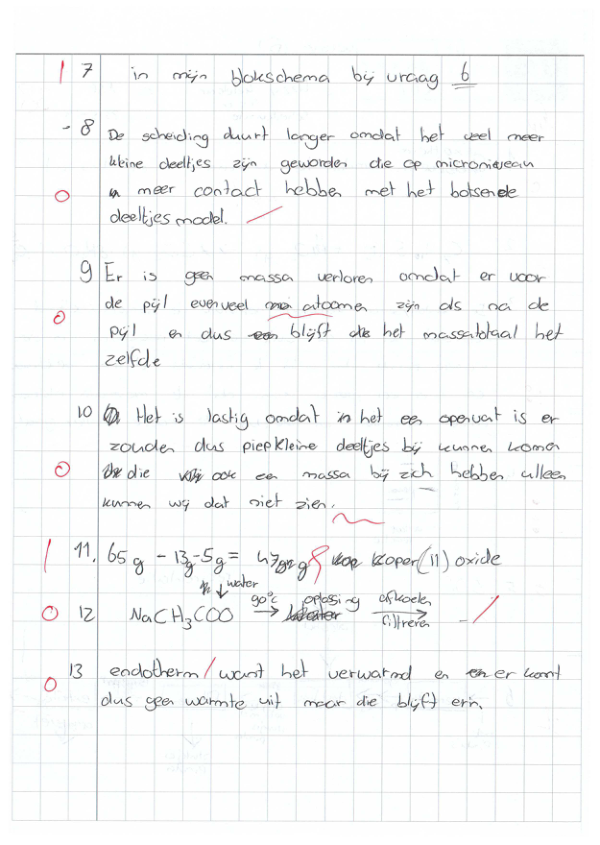 1 7 in mijn blokschema bij vraag 6
- 8 De scheiding duurt langer omdat het veel meer
kleine deeltjes zijn geworden die op micronieveau
0 meer contact hebben met het botsende
deeltjes model.
9 Er is geen massa verloren omdat er voor
0 de pijl evenveel atoomen zijn als na de
pijl en dus blijft het massatotaal het
zelfde
10 Het is lastig omdat in het een openvat is er
zouden dus piepkleine deeltjes bij kunnen komen
0 die ook een massa bij zich hebben alleen
kunnen wij dat niet zien.
1 11. 65 g - 13 g - 5 g = 47 g koper(II) oxide
↓ water
0 12 NaCH3COO 90°C → oplossing afkoelen → filtreren
0 13 endotherm want het verwarmd en er komt
dus geen warmte uit maar die blijft erin.